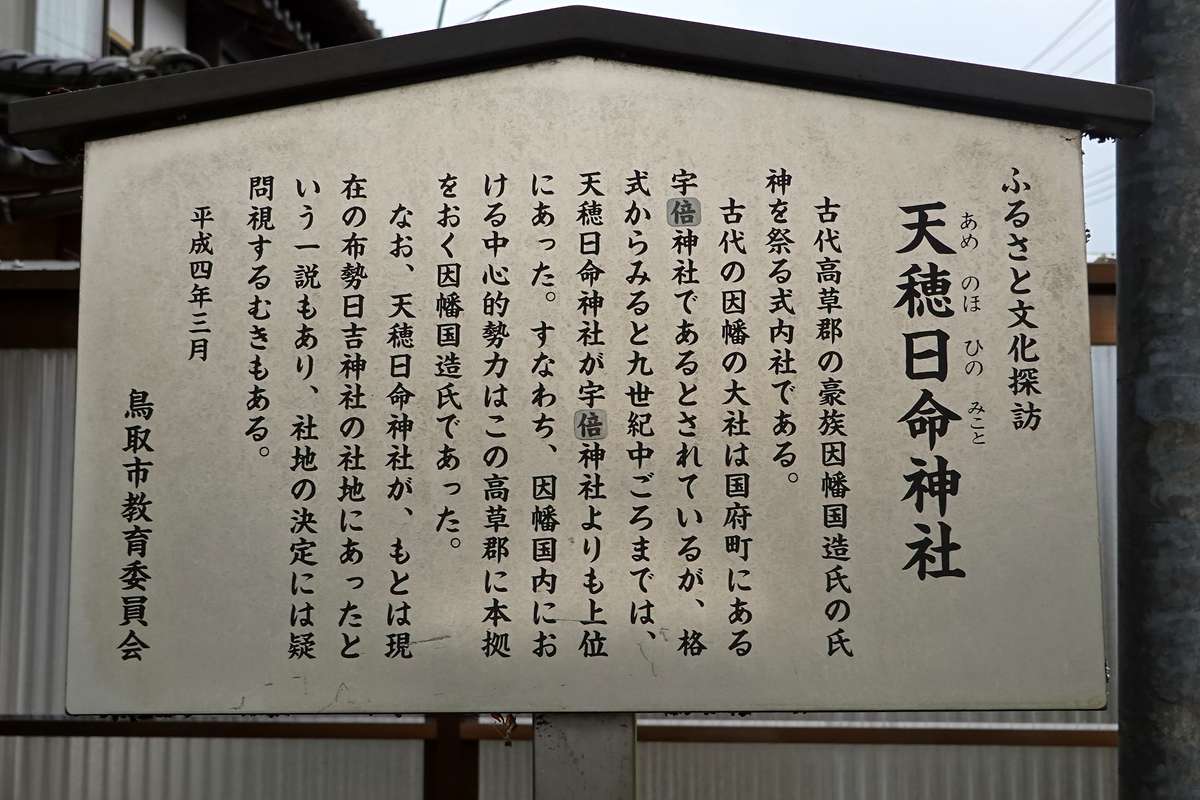 ふるさと文化探訪
天穂日命神社
あめ のほ ひの みこと
古代高草郡の豪族因幡国造氏の氏
神を祭る式内社である。
古代の因幡の大社は国府町にある
宇倍神社であるとされているが、格
式からみると九世紀中ごろまでは、
天穂日命神社が宇倍神社よりも上位
にあった。すなわち、因幡国内にお
ける中心的勢力はこの高草郡に本拠
をおく因幡国造氏であった。
なお、天穂日命神社が、もとは現
在の布勢日吉神社の社地にあったと
いう一説もあり、社地の決定には疑
問視するむきもある。
平成四年三月
鳥取市教育委員会